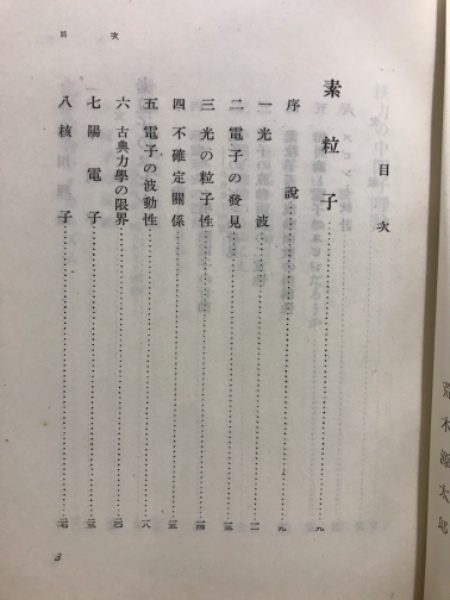 目次
目次
素粒子……九
序説……九
一 光波……一一
二 電子の發見……一三
三 光の粒子性……一四
四 不確定關係……一五
五 電子の波動性……一八
六 古典力學の限界……二〇
七 陽電子……二三
八 核子……二七
3
荒木源太郎